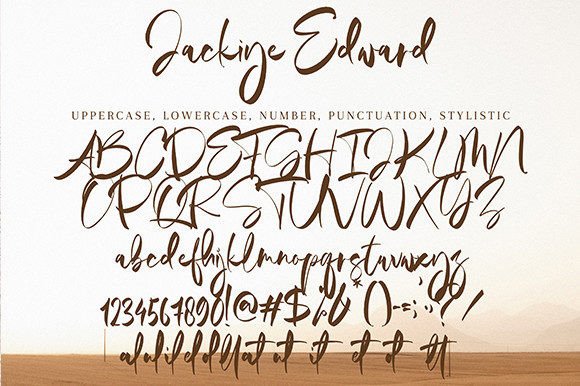 Jackiye Edward
UPPERCASE, LOWERCASE, NUMBER, PUNCTUATION, STYLISTIC
ABCDEFGHIJKLMN
OPQRSTUVWXYZ
abcdefghijklmnopqrstuvwxyz
1234567890!@#$%&*()-=;:'"/